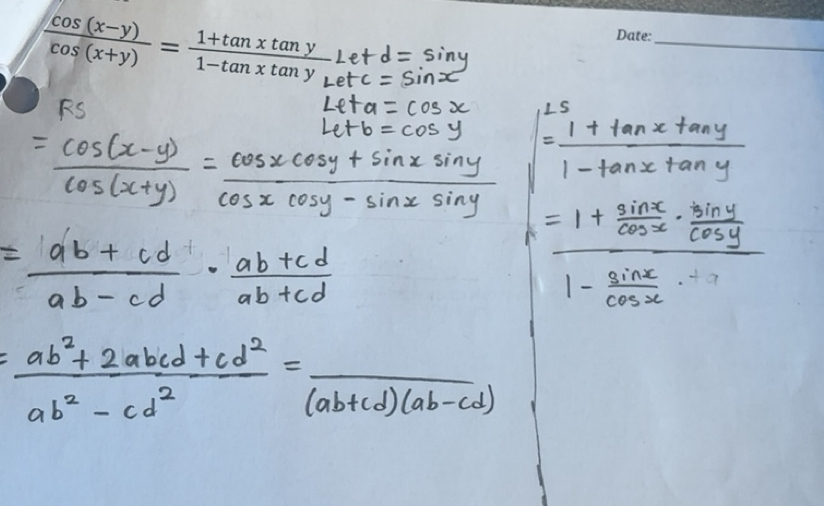 cos (x−y)/cos (x+y) = 1+tan x tan y/1−tan x tan y
Date:
Let d = siny
Let c = sinx
Let a = cos x
Let b = cos y
RS
= cos(x−y)/cos(x+y) = cosx cosy + sinx siny/cosx cosy − sinx siny
= ab + cd/ab − cd · ab + cd/ab + cd
= ab² + 2abcd + cd²/ab² − cd² = /(ab+cd)(ab−cd)
LS
= 1 + tanx tany/1 − tanx tan y
= 1 + sinx/cosx · siny/cosy/1 − sinx/cosx ·